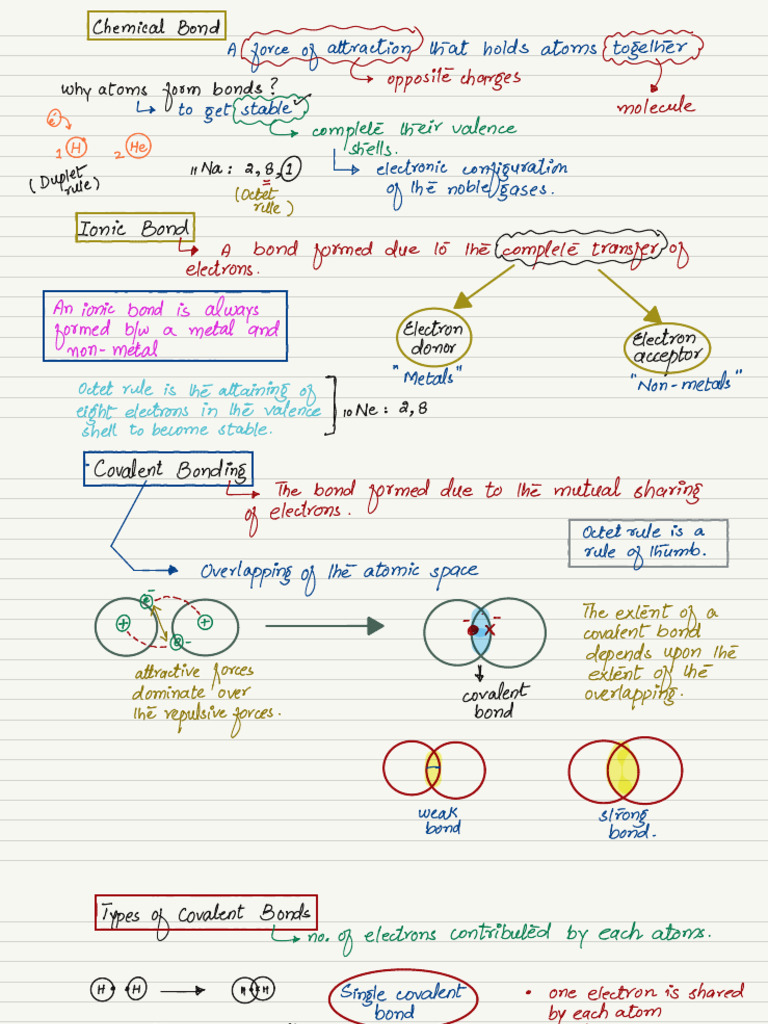 Chemical Bond
A force of attraction that holds atoms together
opposite charges
molecule
why atoms form bonds?
to get stable
complete their valence
shells.
electronic configuration
of the noble gases.
e-
1 H 2 He
(Duplet
rule)
11Na: 2, 8, 1
(Octet
rule)
Ionic Bond
A bond formed due to the complete transfer of
electrons.
An ionic bond is always
formed b/w a metal and
non-metal
Electron
donor
"Metals"
Electron
acceptor
"Non-metals"
Octet rule is the attaining of
eight electrons in the valence
shell to become stable.
10Ne: 2, 8
Covalent Bonding
The bond formed due to the mutual sharing
of electrons.
Octet rule is a
rule of thumb.
Overlapping of the atomic space
+ e- e- +
attractive forces
dominate over
the repulsive forces.
- x -
covalent
bond
The extent of a
covalent bond
depends upon the
extent of the
overlapping.
weak
bond
strong
bond.
Types of Covalent Bonds
no. of electrons contributed by each atoms.
H H H H
Single covalent
bond
• one electron is shared
by each atom